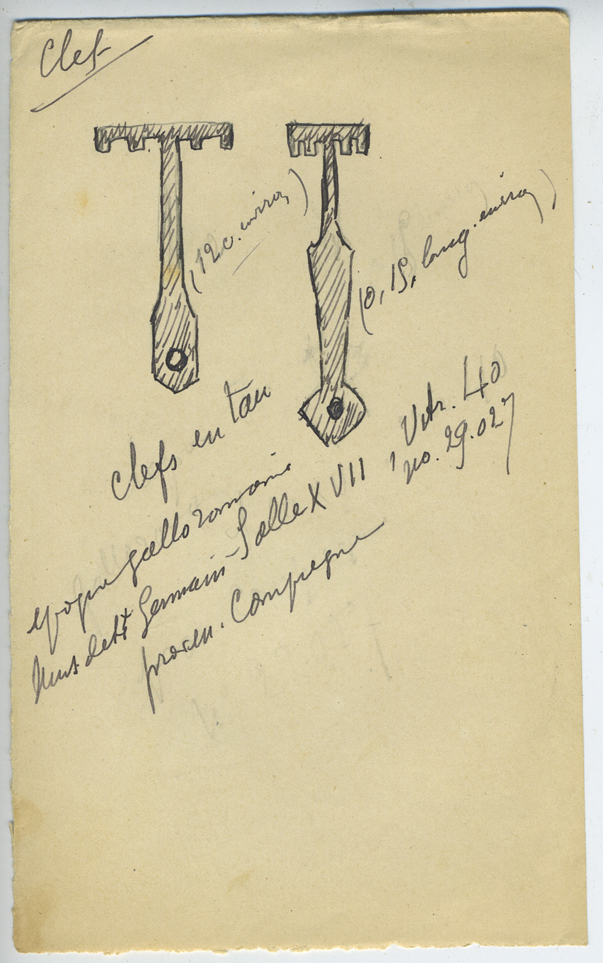 Clef
(12c. environ)
(0,15, long. environ)
clefs en tau
epoque galloromaine
Mus de St Germain Salle XVII, Vitr. 40
no. 29.027
proven. Compiegne